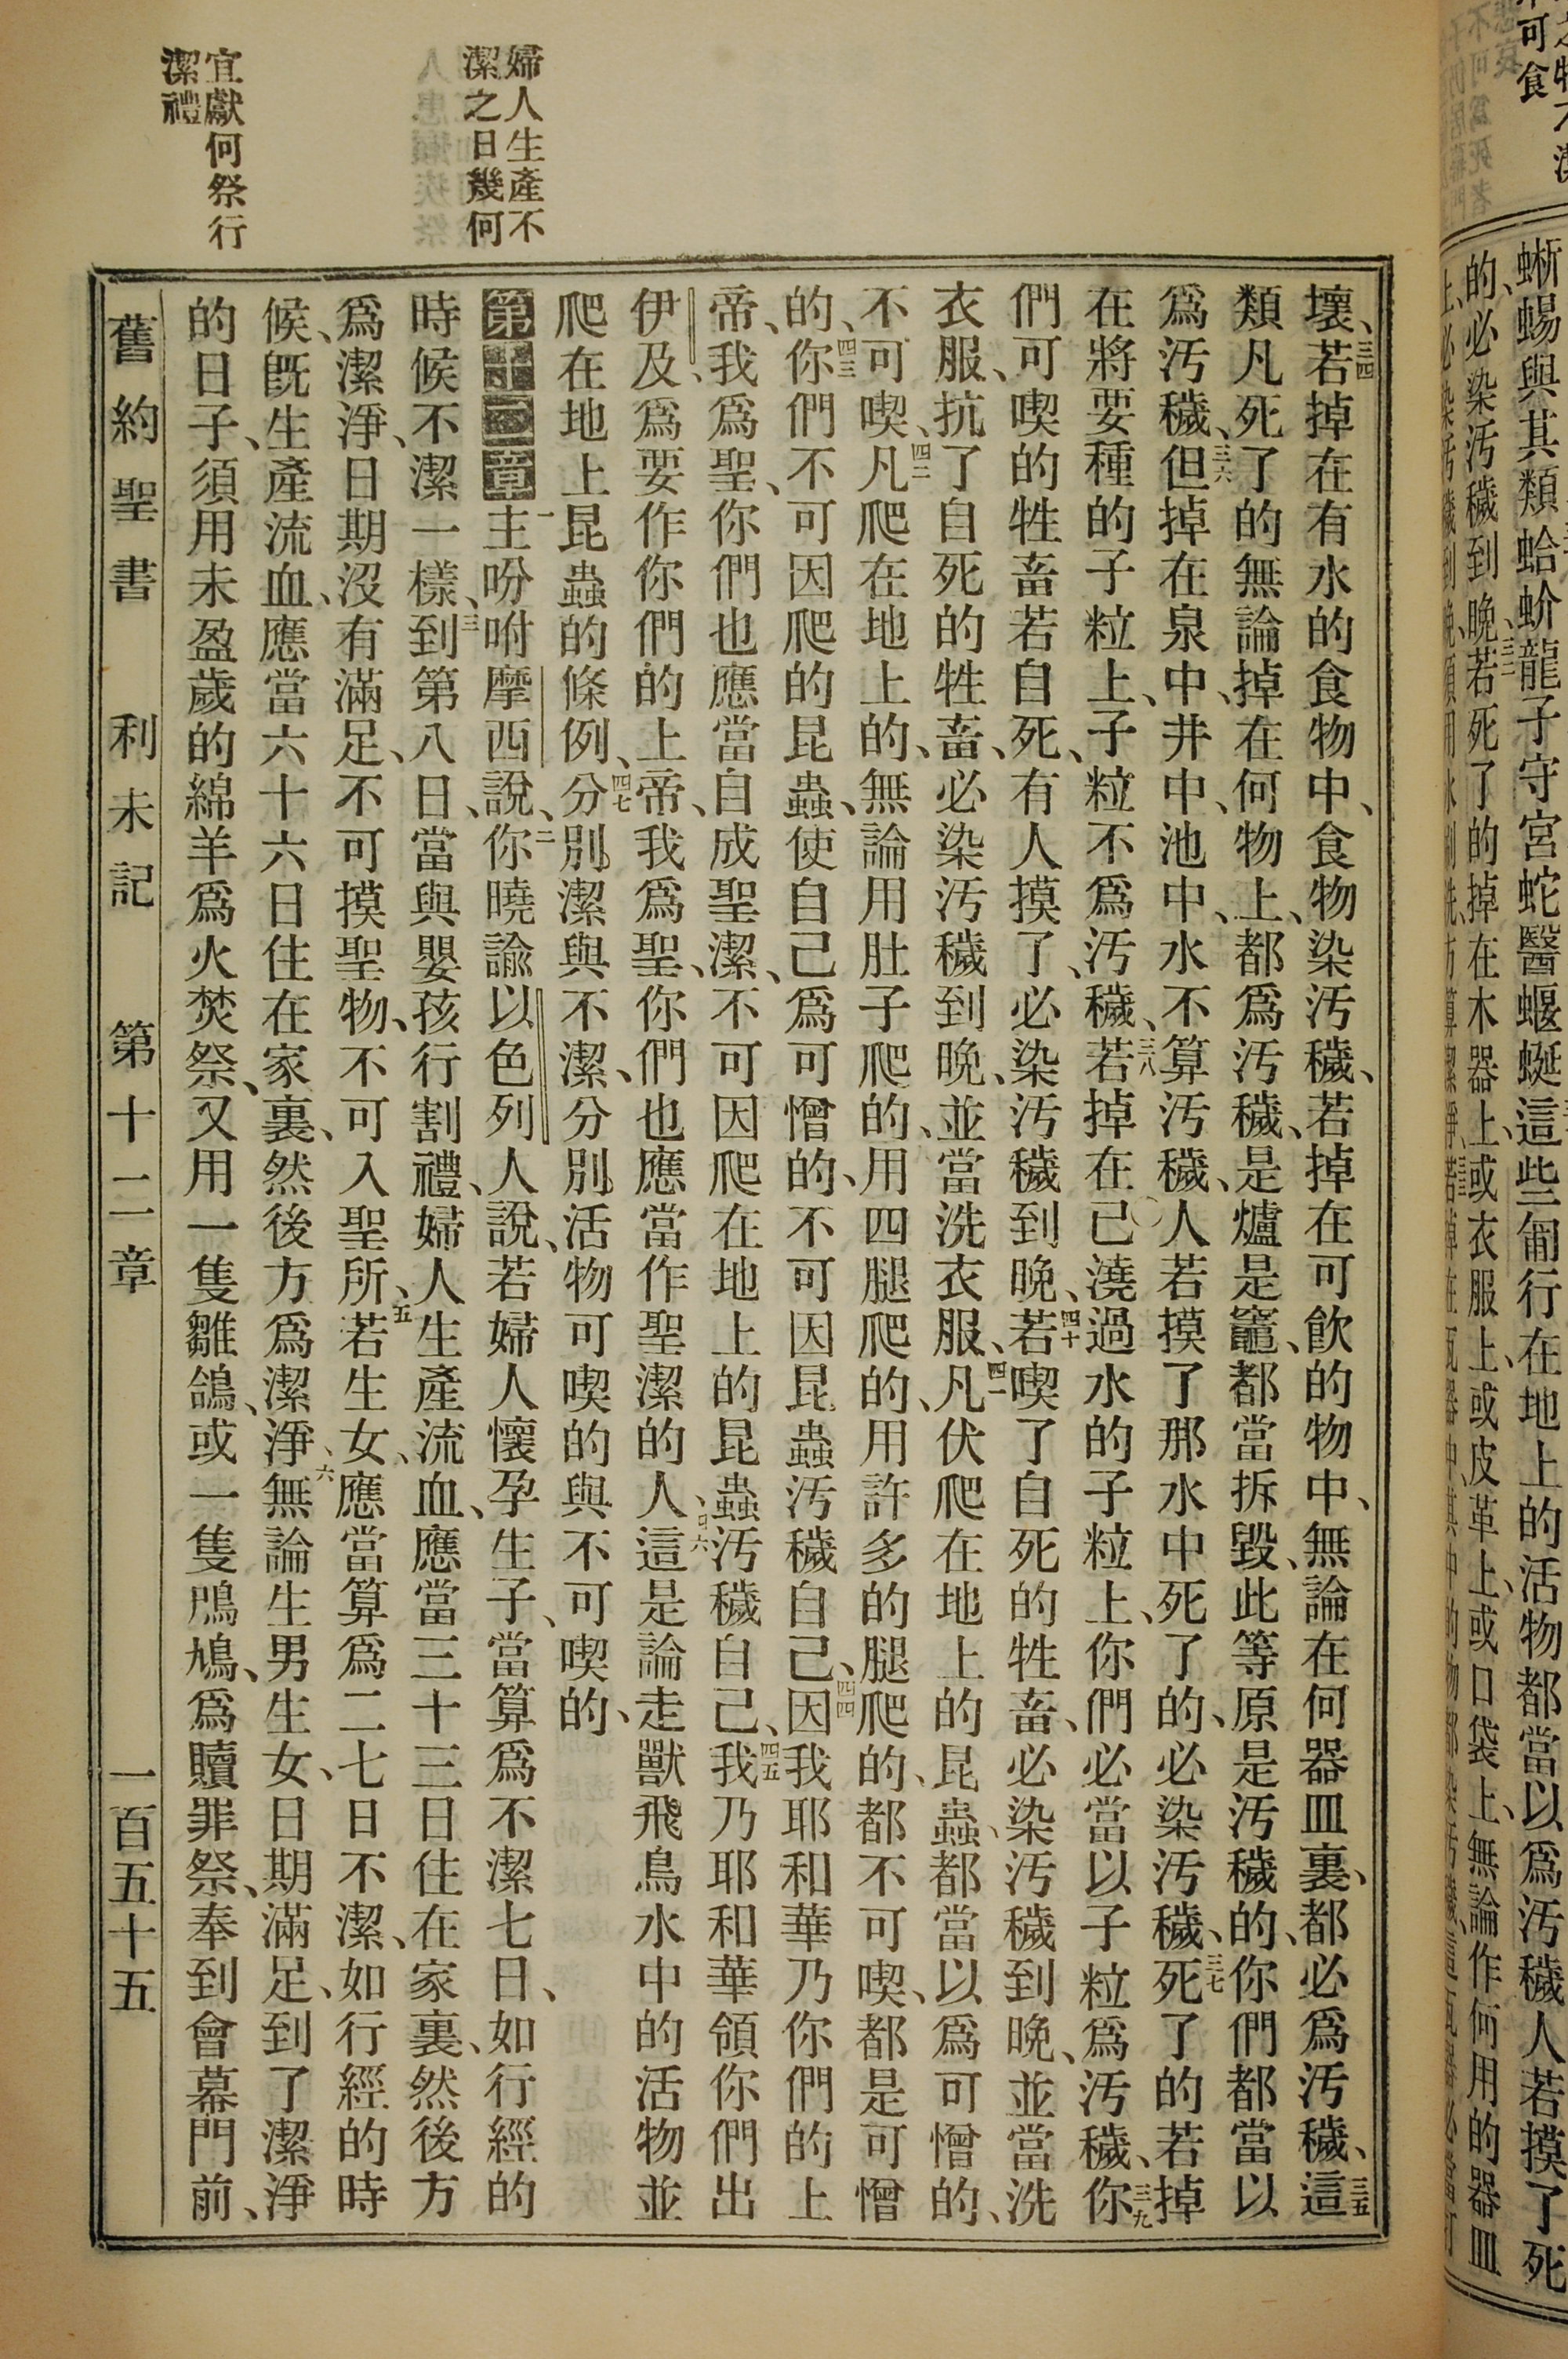 婦人生產不
潔之日幾何
宜獻何祭行
潔禮
壞、三四若掉在有水的食物中、食物染汚穢、若掉在可飮的物中、無論在何器皿裏、都必爲汚穢、三五這
類凡死了的無論掉在何物上、都爲汚穢、是爐是竈、都當拆毀、此等原是汚穢的、你們都當以
爲汚穢、三六但掉在泉中、井中、池中、水不算汚穢、人若摸了那水中死了的、必染汚穢、三七死了的若掉
在將要種的子粒上、子粒不爲汚穢、三八若掉在已澆過水的子粒上、你們必當以子粒爲汚穢、三九你
們可喫的牲畜若自死、有人摸了、必染汚穢到晚、四十若喫了自死的牲畜、必染汚穢到晚、並當洗
衣服、抗了自死的牲畜、必染汚穢到晚、並當洗衣服、四一凡伏爬在地上的昆蟲、都當以爲可憎的、
不可喫、四二凡爬在地上的、無論用肚子爬的、用四腿爬的、用許多的腿爬的、都不可喫、都是可憎
的、四三你們不可因爬的昆蟲、使自己爲可憎的、不可因昆蟲汚穢自己、四四因我耶和華乃你們的上
帝、我爲聖、你們也應當自成聖潔、不可因爬在地上的昆蟲汚穢自己、四五我乃耶和華領你們出
伊及、爲要作你們的上帝、我爲聖、你們也應當作聖潔的人、四六這是論走獸飛鳥水中的活物並
爬在地上昆蟲的條例、四七分別潔與不潔、分別活物可喫的與不可喫的、
第十二章一主吩咐摩西說、二你曉諭以色列人說、若婦人懷孕生子、當算爲不潔七日、如行經的
時候不潔一樣、三到第八日、當與嬰孩行割禮、婦人生產流血、應當三十三日住在家裏、然後方
爲潔淨、日期沒有滿足、不可摸聖物、不可入聖所、五若生女、應當算爲二七日不潔、如行經的時
候、旣生產流血、應當六十六日住在家裏、然後方爲潔淨、六無論生男生女、日期滿足、到了潔淨
的日子、須用未盈歲的綿羊爲火焚祭、又用一隻雛鴿、或一隻鳲鳩、爲贖罪祭、奉到會幕門前、
舊約聖書 利未記 第十二章 一百五十五
蜥蜴與其類蛤蚧龍子守宮蛇醫蝘蜒這些匍行在地上的活物都當以爲汚穢人若摸了死
的、必染汚穢到晚、三二若死了的掉在木器上、或衣服上、或皮革上、或口袋上、無論作何用的器皿